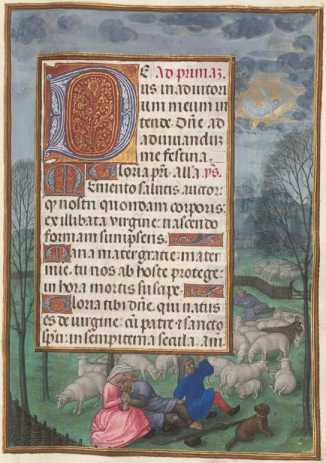 Ad prima3
Deus in adiutor
ium meum in
tende. Dñe ad
adiuuandũ
me festina.
Gloria pr̃i. Alla. ys.
Memento salutis auctor:
q̃ nostri quondam corporis:
ex illibata virgine: nascendo
formam sumpseris.
Maria mater gratie: mater
mie: tu nos ab hoste protege:
in hora mortis suscipe.
Gloria tibi dñe. qui natus
es de virgine: cũ patre & sancto
spũ: in sempiterna secula. am̃